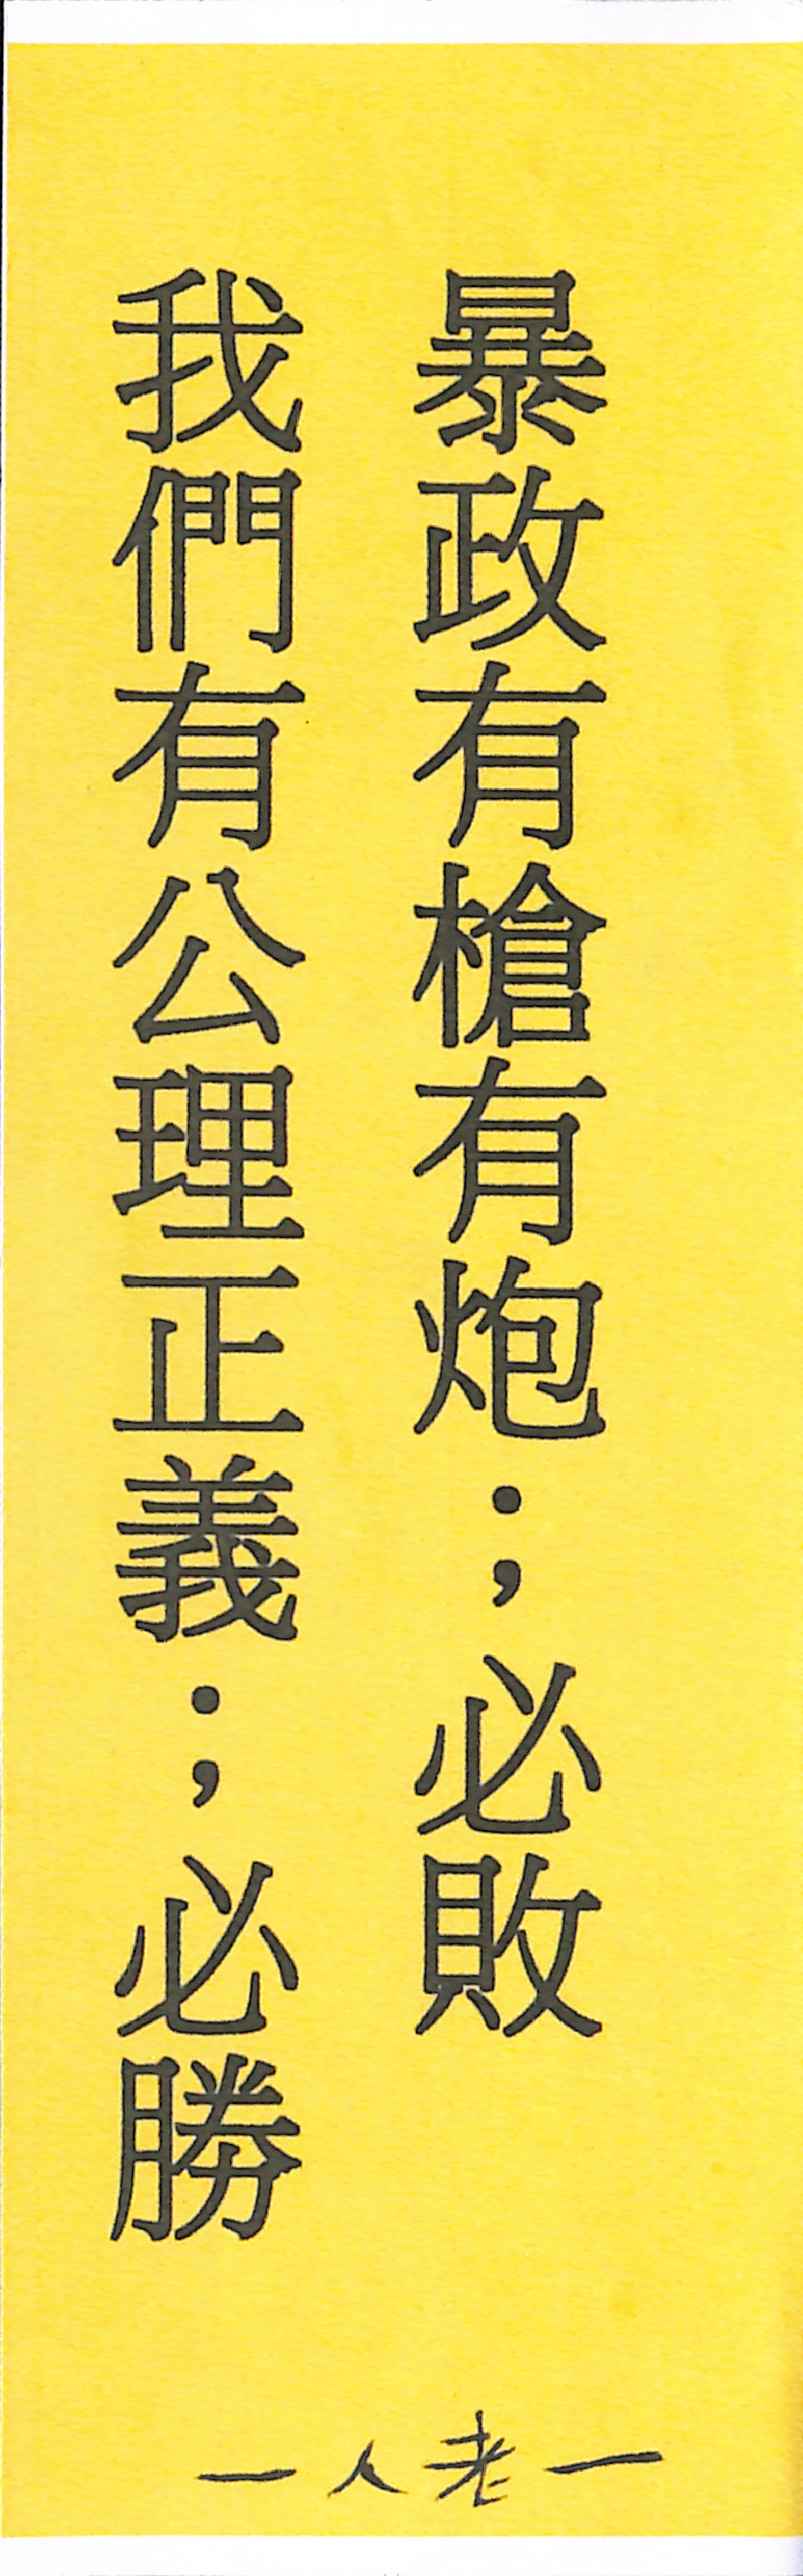 暴政有槍有炮；必敗
我們有公理正義；必勝
一老人一